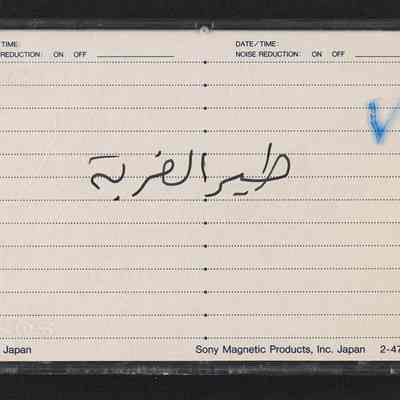 TIME:
DATE/TIME:
REDUCTION: ON OFF
NOISE REDUCTION: ON OFF
طير الغربة
Japan
Sony Magnetic Products, Inc. Japan 2-47